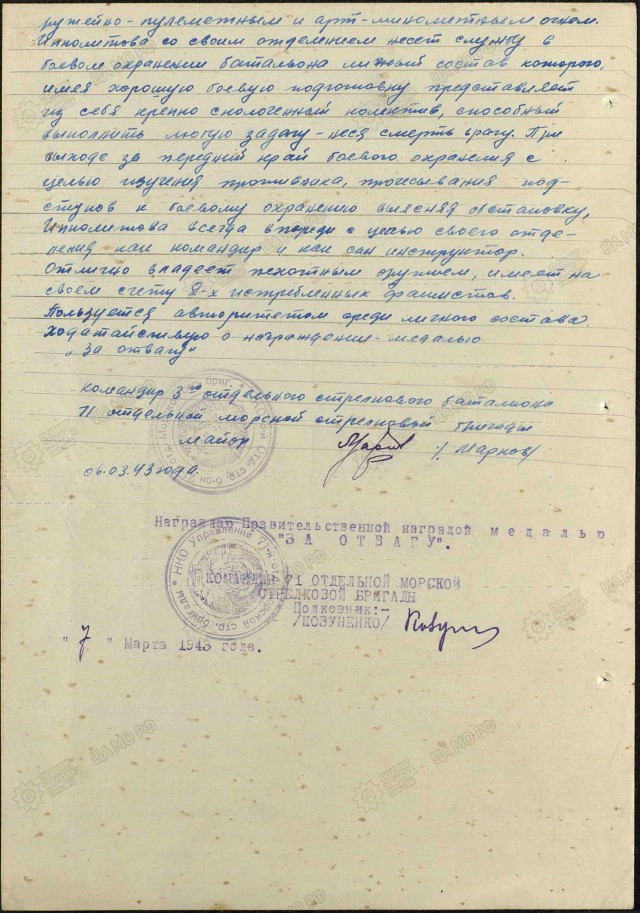 ружейно-пулеметным и арт-минометным огнем.
Ипполитова со своим отделением несет службу в
боевом охранении батальона личный состав которого,
имея хорошую боевую подготовку представляет
из себя крепко сколоченный колектив, способный
выполнить любую задачу - неся смерть врагу. При
выходе за передний край боевого охранения с
целью изучения противника, прочесывания под-
ступов к боевому охранению выясняя обстановку,
Ипполитова всегда впереди с целью своего отде-
ления как командир и как сан инструктор.
Отлично владеет пехотным оружием, имеет на
своем счету 8-х истребленных фашистов.
Пользуется авторитетом среди личного состава.
Ходатайствую о награждении - медалью
"За отвагу"
Командир 3го отдельного стрелкового батальона
71 отдельной морской стрелковой бригады
майор / Марков /
06.03.43 года.
Награждаю Правительственной наградой медалью
"ЗА ОТВАГУ".
НКО Управление 71-й отд. морской стр. бригады
КОМАНДИР 71 ОТДЕЛЬНОЙ МОРСКОЙ
СТРЕЛКОВОЙ БРИГАДЫ
Полковник:-
/КОЗУНЕНКО/
"7" Марта 1943 года.
ЦАМО РФ